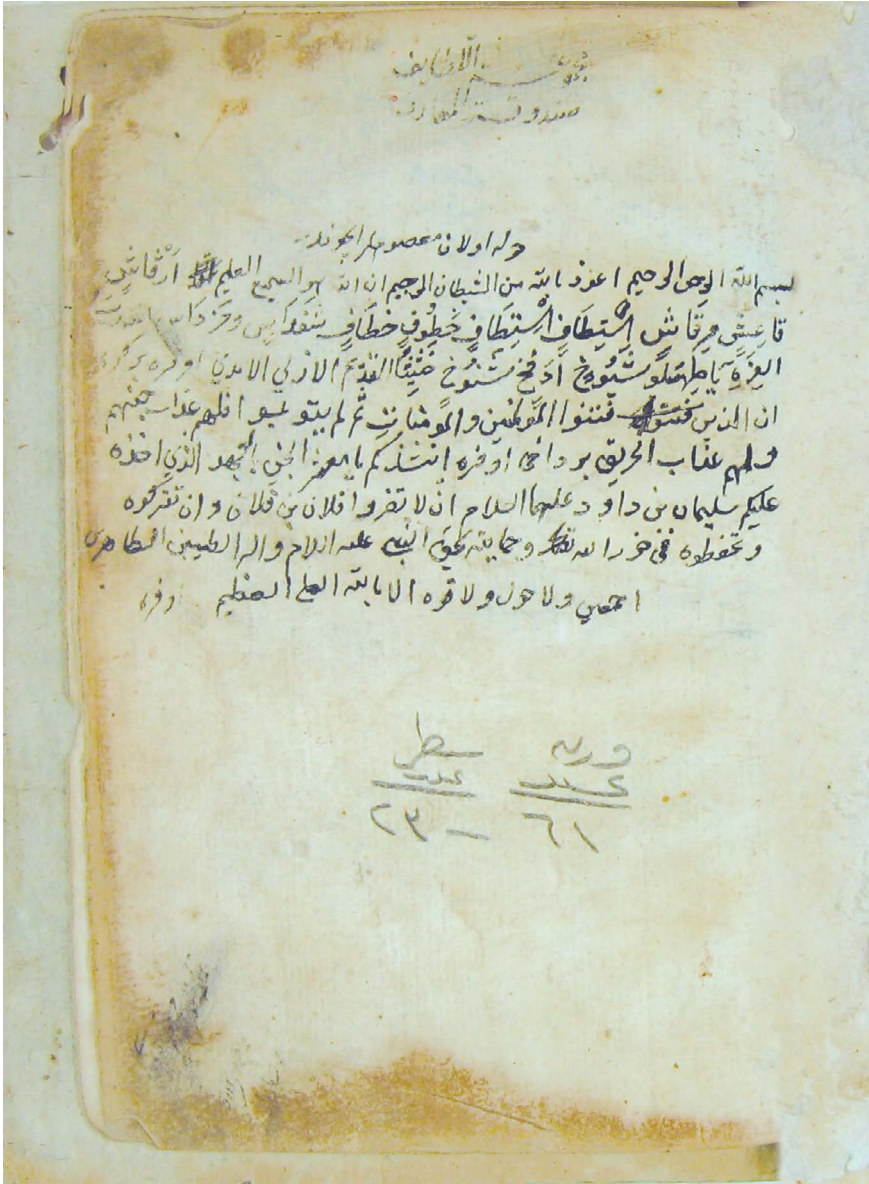 اللطايف
صندوقة المعارف
وله اولان معصوملر ايچوندر
بسم الله الرحمن الرحيم اعوذ بالله من الشيطان الرجيم ان الله هو السميع العليم أَرْقَاشٍ
قاعِشٍ مِرقَاشٍ اِسْتِطَافٍ اِسْتِطَافٍ خَطُوفٍ خَطَافٍ
العِزَّةِ يا شَنُوخ القديم الازلي الابدي اوقره
ان الذين فتنوا المؤمنين والمؤمنات ثم لم يتوبوا فلهم عذاب جهنم
ولهم عذاب الحريق بر داخى اوقره انشدكم يا معشر الجن بالعهد الذي اخذه
عليكم سليمان بن داود عليهما السلام ان لا تضروا فلان بن فلان وان تتركوه
وتحفظوه في حرز الله وحمايته بحق النبي عليه السلام واله الطيبين الطاهرين
اجمعين ولا حول ولا قوة الا بالله العلي العظيم اوقره
ورقه سطر
عدد عدد
٦١ - ٢٣